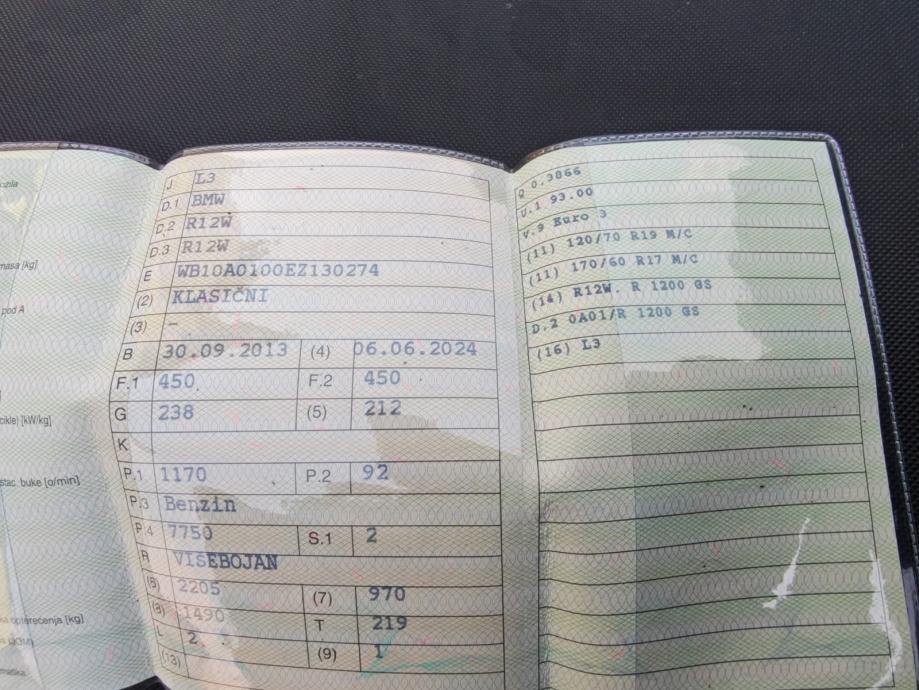 masa [kg]
pod A
cikle) [kW/kg]
stac. buke [o/min]
opterećenja [kg]
J L3
D.1 BMW
D.2 R12W
D.3 R12W
E WB10A0100EZ130274
(2) KLASIČNI
(3) –
B 30.09.2013 (4) 06.06.2024
F.1 450 F.2 450
G 238 (5) 212
K
P.1 1170 P.2 92
P.3 Benzin
P.4 7750 S.1 2
R VIŠEBOJAN
(6) 2205 (7) 970
(8) 1490 T 219
L 2 (9) 1
(13)
Q 0.3866
U.1 93.00
V.9 Euro 3
(11) 120/70 R19 M/C
(11) 170/60 R17 M/C
(14) R12W. R 1200 GS
D.2 0A01/R 1200 GS
(16) L3